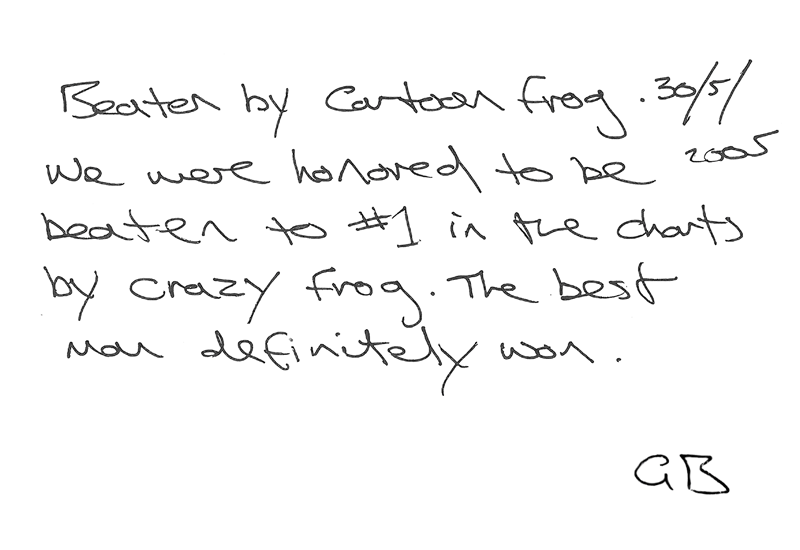 Beaten by Cartoon frog. 30/5/
2005
We were honored to be
beaten to #1 in the charts
by crazy frog. The best
man definitely won.
GB